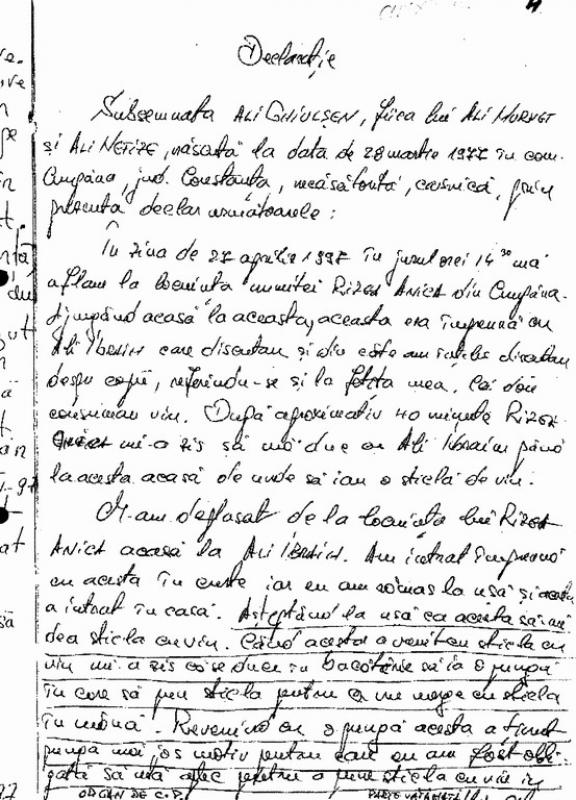 Declarație
Subsemnata ALI GHIULSEN, fiica lui ALI MURVET
și ALI NEFIZE, născută la data de 28 martie 1977 în com.
Cumpăna, jud. Constanța, necăsătorită, casnică, prin
prezenta declar următoarele:
În ziua de 27 aprilie 1997 în jurul orei 14 30 mă
aflam la locuința numitei RIZEA ANICA din Cumpăna.
Ajungând acasă la aceasta, aceasta era împreună cu
Ali Ibraim care discutau și din câte am înțeles discutau
despre copii, referindu-se și la fetița mea. Cei doi
consumau vin. După aproximativ 40 minute RIZEA
ANICA mi-a zis să mă duc cu Ali Ibraim până
la acesta acasă de unde să iau o sticlă de vin.
M-am deplasat de la locuința lui RIZEA
ANICA acasă la ALI IBRAIM. Am intrat împreună
cu acesta în curte iar eu am rămas la ușă și acesta
a intrat în casă. Așteptând la ușă ca acesta să-mi
dea sticla cu vin. Când acesta a venit cu sticla cu
vin mi-a zis că se duce în bucătărie să ia o pungă
în care să pun sticla pentru a nu merge cu sticla
în mână. Revenind cu o pungă acesta a ținut
punga mai jos motiv pentru care eu am fost obli-
gată să mă aplec pentru a pune sticla cu vin în
ORGAN DE C.P.